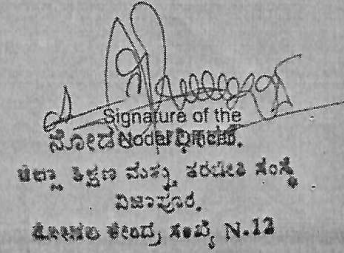 Signature of the
Nodal Officer.
ನೋಡಲ್ ಅಧಿಕಾರಿ.
ಜಿಲ್ಲಾ ಶಿಕ್ಷಣ ಮತ್ತು ತರಬೇತಿ ಸಂಸ್ಥೆ
ವಿಜಾಪೂರ.
ನೋಡಲ ಕೇಂದ್ರ ಸಂಖ್ಯೆ N.12